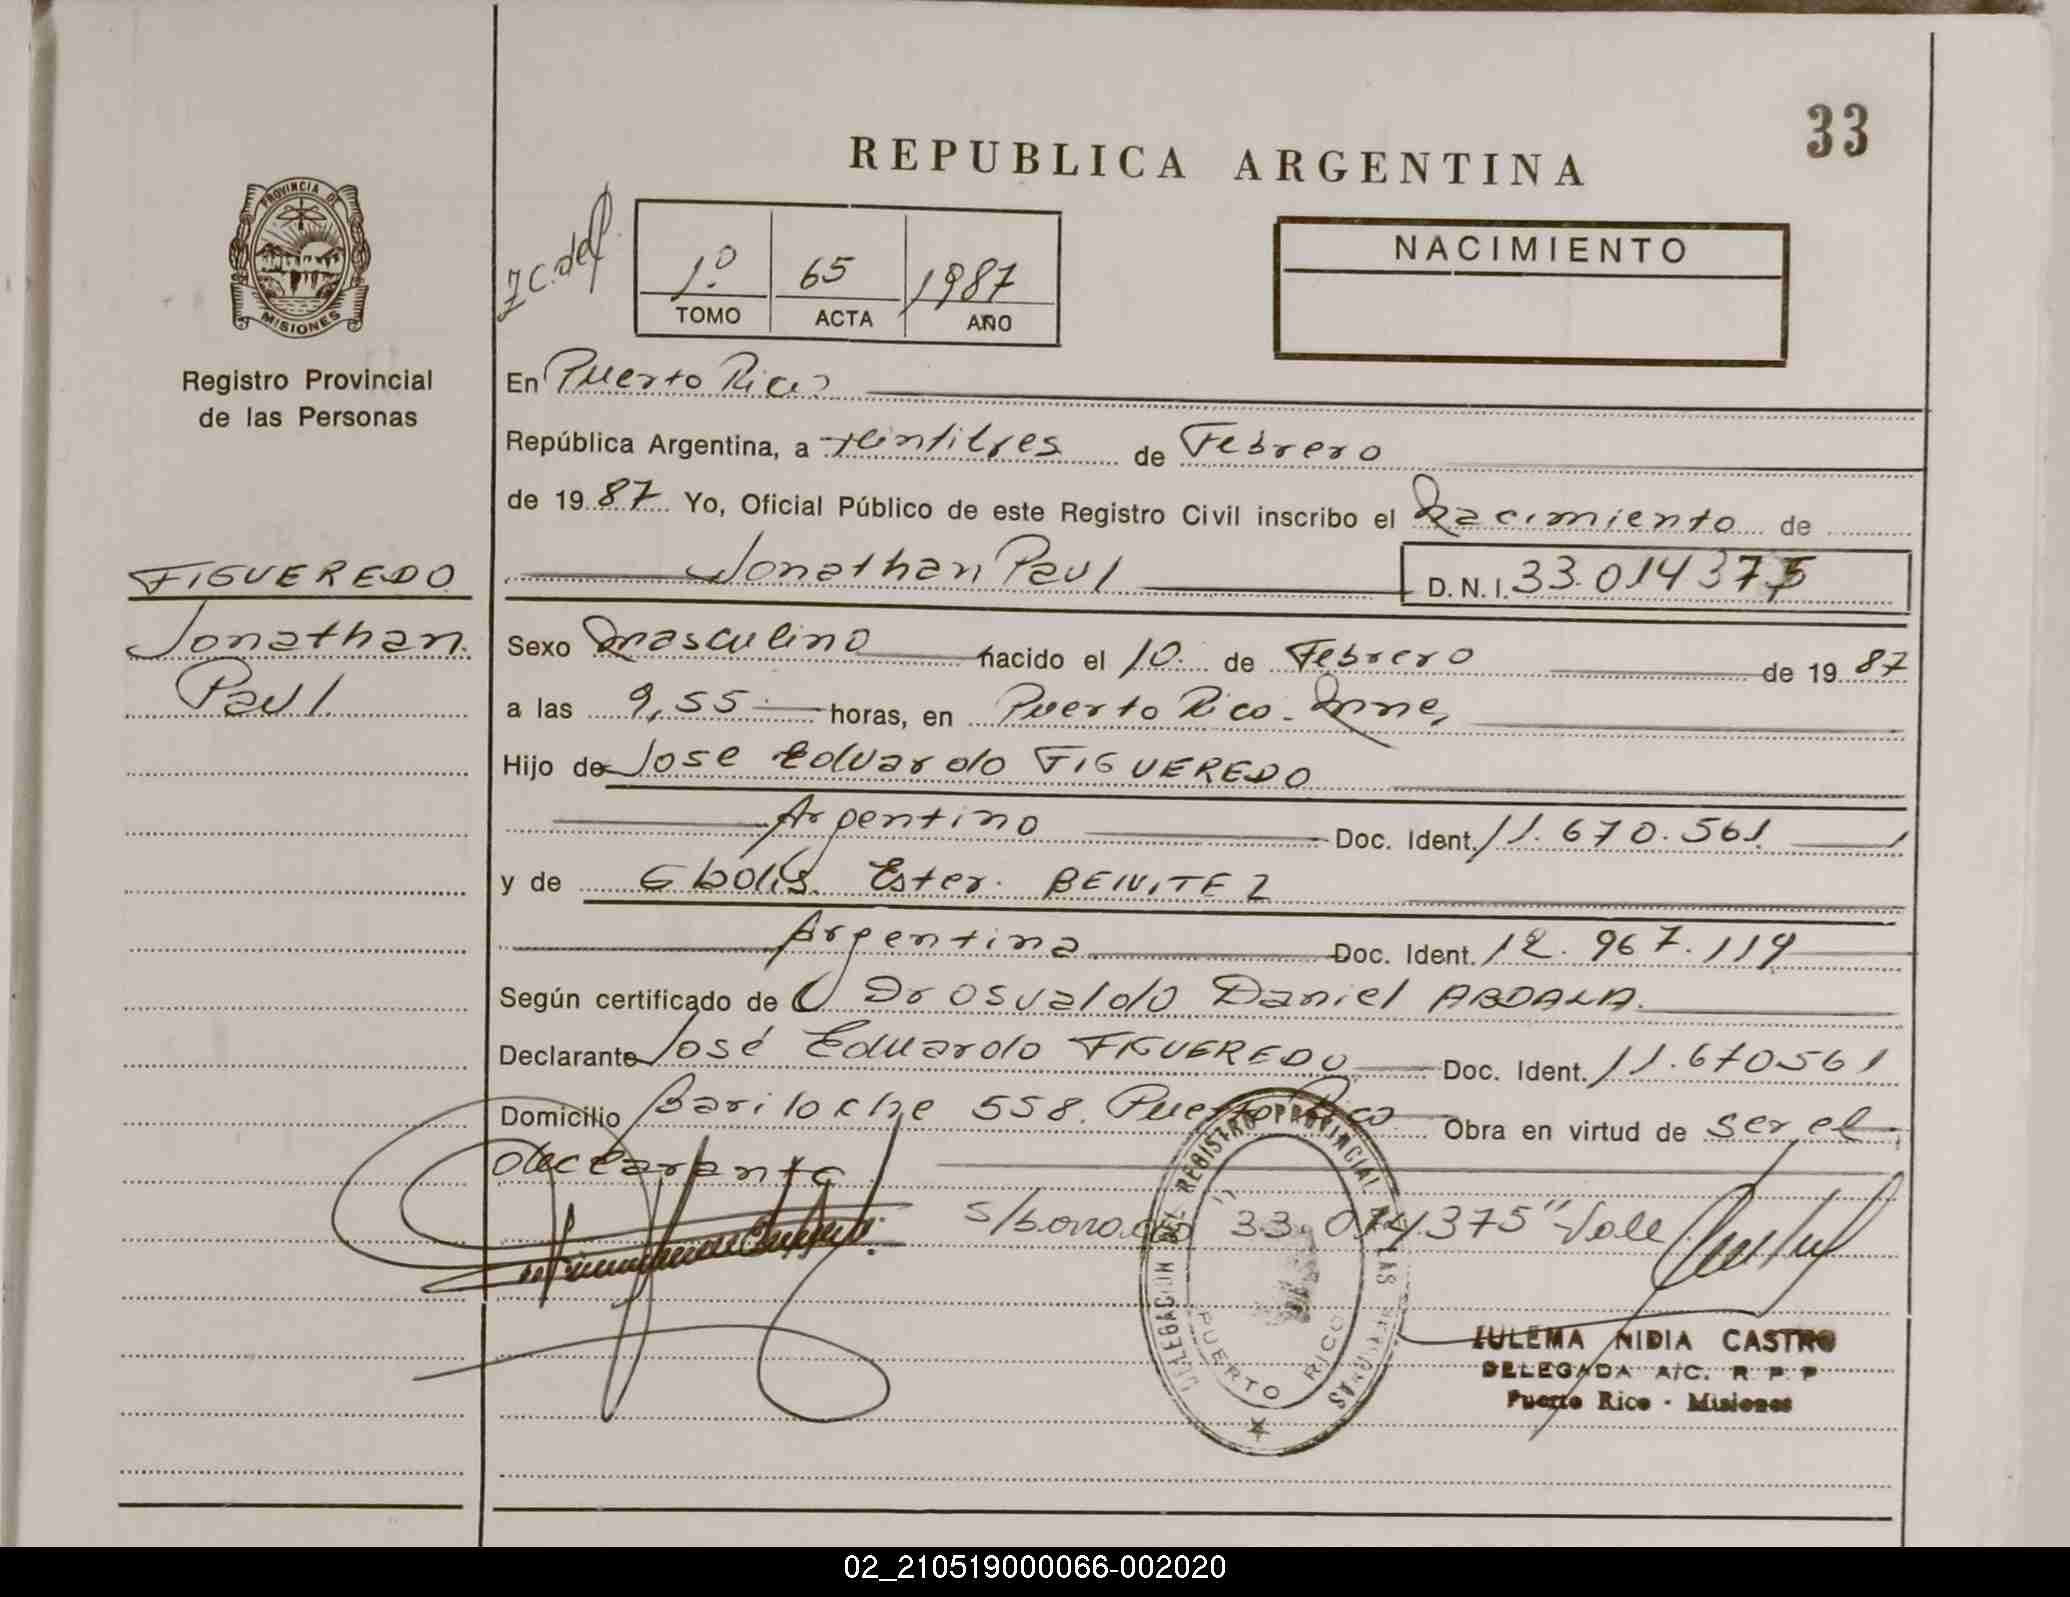 33
REPUBLICA ARGENTINA
PROVINCIA DE
MISIONES
Registro Provincial
de las Personas
1º 65 1987
TOMO ACTA AÑO
NACIMIENTO
En Puerto Rico
República Argentina, a veintitres de Febrero
de 1987 Yo, Oficial Público de este Registro Civil inscribo el Nacimiento de
Jonathan Paul D.N.I. 33.014375
FIGUEREDO
Jonathan
Paul
Sexo Masculino nacido el 10 de Febrero de 1987
a las 9,55 horas, en Puerto Rico. Mnes,
Hijo de Jose Eduardo FIGUEREDO
Argentino Doc. Ident. 11.670.561
y de Ester BENITEZ
Argentina Doc. Ident. 12.967.119
Según certificado de Dr Osvaldo Daniel ABDALA
Declarante José Eduardo FIGUEREDO Doc. Ident. 11.670561
Domicilio Bariloche 558. Puerto Rico Obra en virtud de ser el
declarante
S/borrado 33.014375" Vale
DELEGACION DEL REGISTRO PROVINCIAL DE LAS PERSONAS
PUERTO RICO
ZULEMA NIDIA CASTRO
DELEGADA A/C. R P P
Puerto Rico - Misiones
02_210519000066-002020